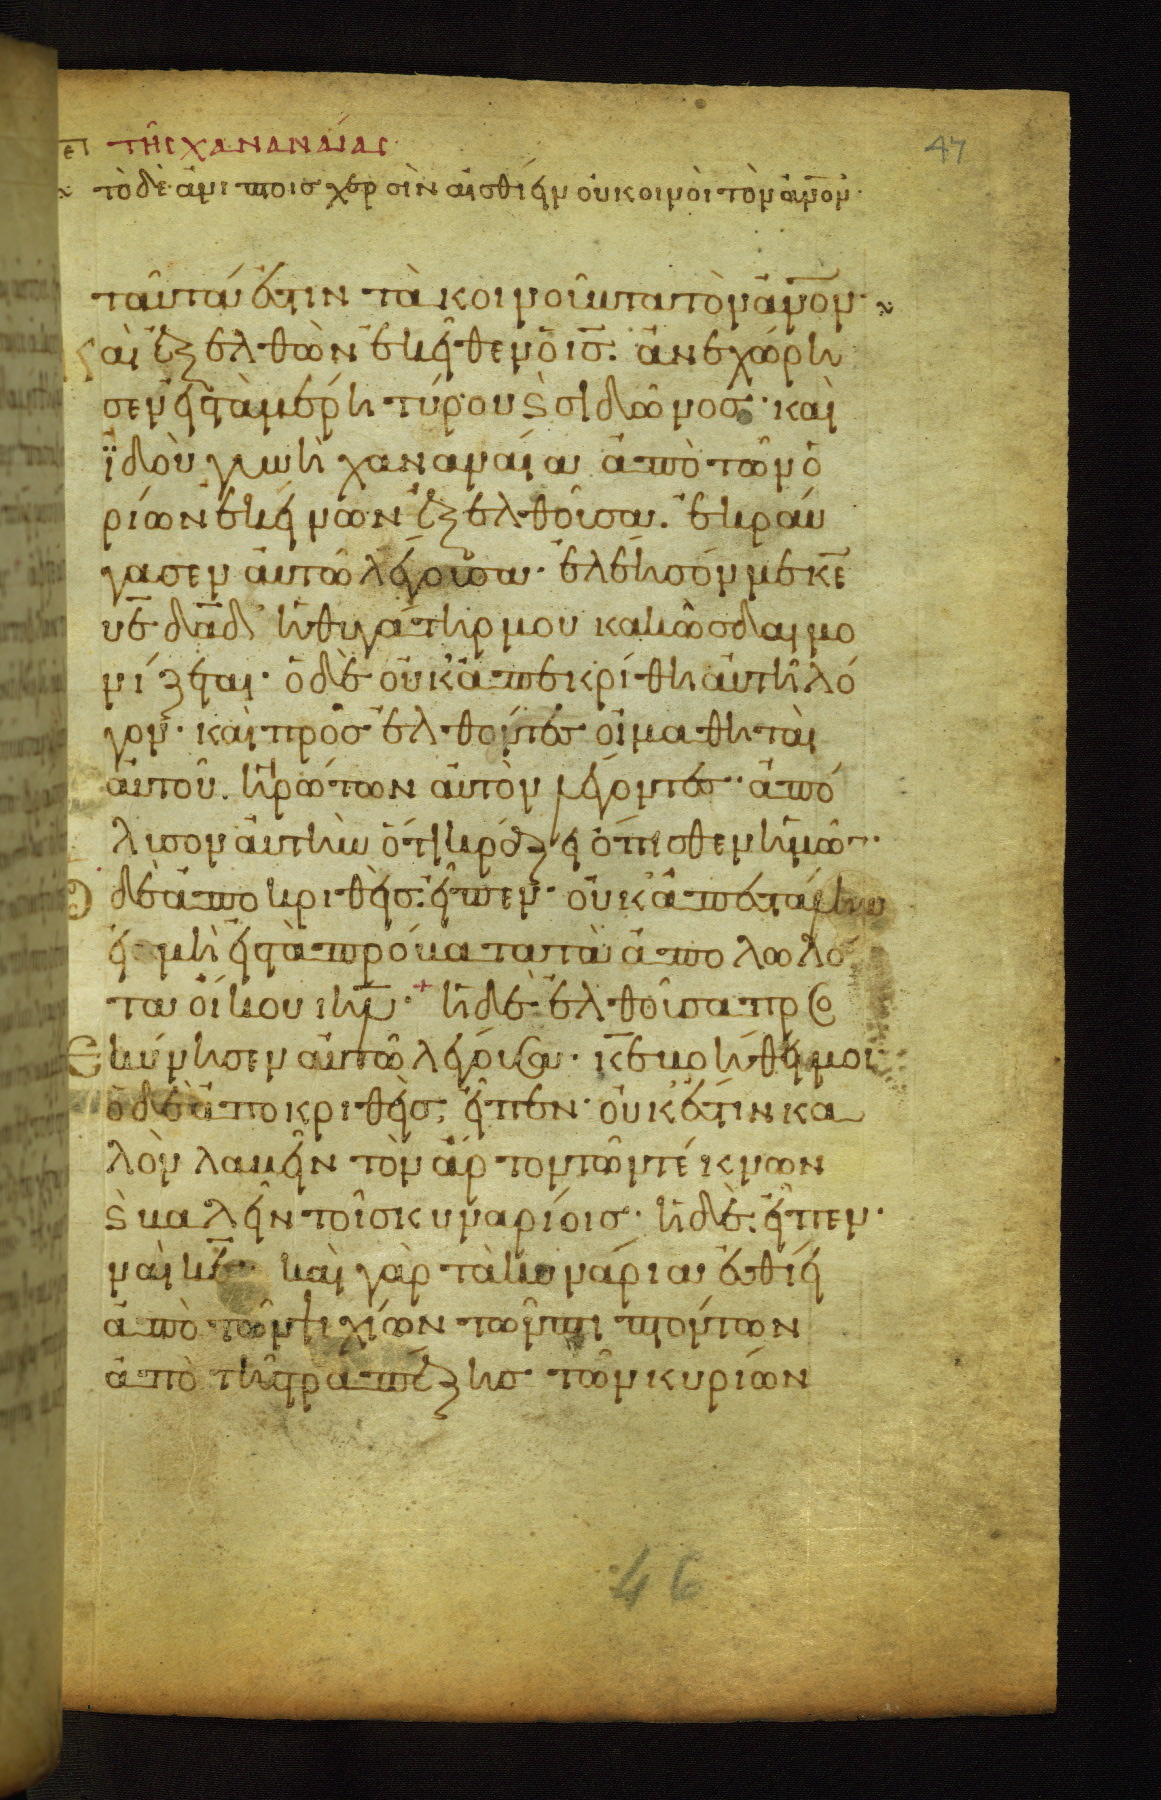 τῆς χανανάιας
47
τὸ δὲ ἀνίπτοισ χερσὶν αἰσθίειν οὐ κοινοὶ τὸν ἀν̅ον·
ταῦτα ἐστιν τὰ κοινοῦντα τὸν ἀν̅ον·
κ αὶ ἐξελθὼν ἐκεῖθεν ὁ ισ̅. ἀνεχώρη
σεν εἰς τὰ μέρη τύρου ϗ σιδῶνοσ· καὶ
ϊδοὺ γυνὴ χαναναία ἀπὸ τῶν ὁ
ρίων ἐκείνων ἐξελθοῦσα. ἐκραύ
γασεν ἀυτῶ λέγουσα· ἐλέησόν με κε̅
υε̅ δα̅δ· ἡ θυγάτηρ μου κακῶσ δαιμο
νίζεται· ὁ δὲ οὐκ ἀπεκρίθη ἀυτῆ λό
γον· καὶ προσελθόντεσ οἱ μαθηταὶ
ἀυτοῦ. ἠρώτων ἀυτὸν λέγοντεσ· ἀπό
λυσον ἀυτὴν ὅτι κράζει ὄπισθεν ἡμῶν·
Ο δὲ ἀποκριθεὶσ· εἶπεν· οὐκ ἀπεστάλην
εἰ μὴ εἰς τὰ πρόβατα τὰ ἀπολωλό
τα οἴκου ιη̅λ·+ ἡ δὲ ἐλθοῦσα προσ
Ε κύνησεν ἀυτῶ λέγουσα· κε̅ βοήθει μοι
ὁ δὲ ἀποκριθεὶσ· εἶπεν· οὐκ ἔστιν κα
λὸν λαβεῖν τὸν ἄρτον τῶν τέκνων
ϗ βαλεῖν τοῖσ κυναρίοισ· ἡ δὲ· εἶπεν·
ναὶ κε̅· καὶ γὰρ τὰ κυνάρια ἐσθίει
ἀπὸ τῶν ψιχίων τῶν πιπτόντων
ἀπὸ τῆς τραπέζησ τῶν κυρίων
46